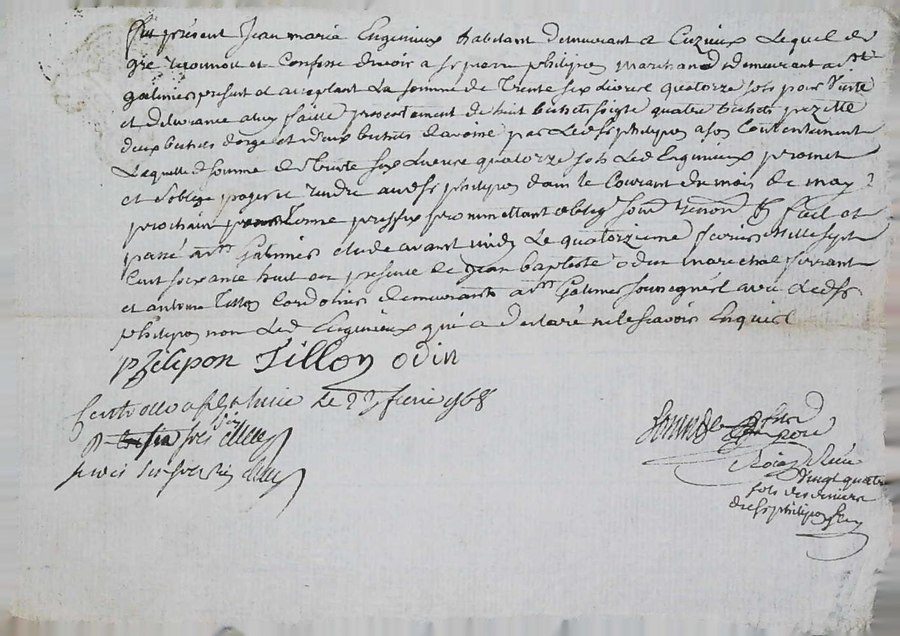 fut présent Jean marie Enginieux habitant demeurant a Cuzieux Lequel de
gré reconnoit et Confesse devoir a sr pierre philipon marchand demeurant a st
galmier present et acceptant La somme de Trente six livres quatorze sols pour Vente
et delivrance a luy faitte presentement de huit bichets seigle quatre bichets pezette
deux bichets dorge et deux bichets davoine par Ledt sr philipon a son Contentement
Laquelle dte somme de Trente six Livres quatorze sols Led Enginieux promet
et soblige payer et rendre audt sr philipon dans le Courant du mois de may
prochain Terme preffix promettant oblig soum renon fait et
passé a st Galmier etude avant midy Le quatorzieme fevrier mille sept
Cent soixante huit en presence de Jean baptiste odin marechal ferrant
et antoine Tillon Cordonier demeurants a st Galmier soussignés avec Ledt sr
philipon non Led Enginieux qui a declaré ne le scavoir Enquis
philipon Tillon odin
Controllé a st galmier Le 27 fevrier 1768
vingt quatre
sols des deniers
dud sr philipon